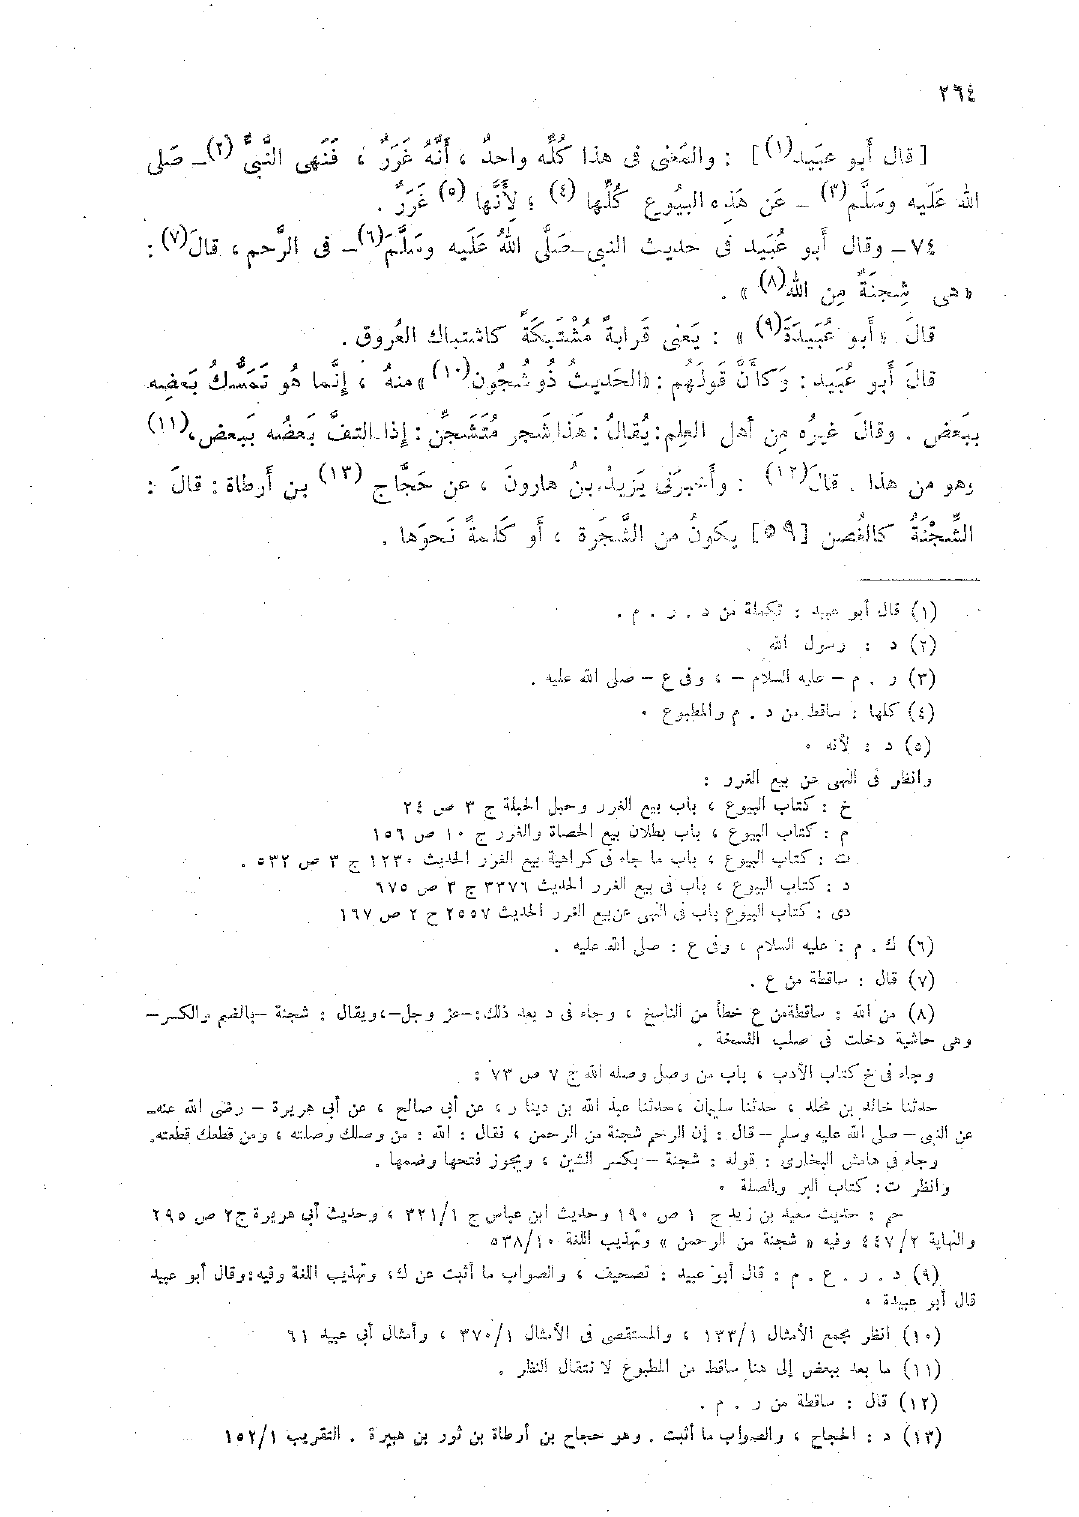 ٢٦٤
[ قال أبو عبَيد(١) ] : والمَعْنى فى هذا كُلِّه واحدٌ ، أَنَّهُ غَرَرٌ ، فَنَهى النَّبىُّ (٢) – صَلى
الله عَلَيه وسَلَّم(٣) – عَن هَذِه البيُوع كُلِّها (٤) ؛ لأَنَّها (٥) غَرَرٌ .
٧٤ – وقال أبو عُبَيد فى حديث النبى – صَلَّى اللهُ عَلَيه وسَلَّمَ(٦) – فى الرَّحم ، قالَ(٧) :
« هى شِجنَةٌ مِن الله(٨) » .
قالَ « أَبو عُبَيدَةَ(٩) » : يَعنى قَرابةً مُشْتَبكَةً كاشتباك العُروق .
قالَ أَبو عُبَيد : وَكأَنَّ قَولَهُم : «الحَديثُ ذُو شُجُون(١٠) » منهُ ، إنَّما هُو تَمَسُّكُ بَعضِه
ببَعض . وقالَ غيرُه مِن أهل العِلم : يُقالُ : هَذا شَجر مُتَشَجِّنٌ : إذا التفَّ بَعضُه ببعض،(١١)
وهو من هذا . قالَ(١٢) : وأَخبرَنى يَزيدُ بنُ هارونَ ، عن حَجَّاج (١٣) بن أَرطاة : قالَ :
الشِّجْنَةُ كالغُصن [٥٩] يكونُ من الشَّجَرة ، أَو كَلمةً نَحوَها .
(١) قال أبو عبيد : تكملة من د . ر . م .
(٢) د : رسول الله .
(٣) ر . م – عليه السلام – ، وفى ع – صلى الله عليه .
(٤) كلها : ساقط من د . م والمطبوع .
(٥) د : لأنه .
وانظر فى النهى عن بيع الغرر :
خ : كتاب البيوع ، باب بيع الغرر وحبل الحبلة ج ٣ ص ٢٤
م : كتاب البيوع ، باب بطلان بيع الحصاة والغرر ج ١٠ ص ١٥٦
ت : كتاب البيوع ، باب ما جاء فى كراهية بيع الغرر الحديث ١٢٣٠ ج ٣ ص ٥٣٢ .
د : كتاب البيوع ، باب فى بيع الغرر الحديث ٣٣٧٦ ج ٣ ص ٦٧٥
دى : كتاب البيوع باب فى النهى عن بيع الغرر الحديث ٢٥٥٧ ج ٢ ص ١٦٧
(٦) ك . م : عليه السلام ، وفى ع : صلى الله عليه .
(٧) قال : ساقطة من ع .
(٨) من الله : ساقطة من ع خطأ من الناسخ ، وجاء فى د بعد ذلك : – عز وجل – ، ويقال : شجنة – بالضم والكسر –
وهى حاشية دخلت فى صلب النسخة .
وجاء فى خ كتاب الأدب ، باب من وصل وصله الله ج ٧ ص ٧٣ :
حدثنا خالد بن مخلد ، حدثنا سليمان ، حدثنا عبد الله بن دينار ، عن أبي صالح ، عن أبي هريرة – رضى الله عنه –
عن النبى – صلى الله عليه وسلم – قال : إن الرحم شجنة من الرحمن ، فقال : الله : من وصلك وصلته ، ومن قطعك قطعته.
وجاء فى هامش البخارى : قوله : شجنة – بكسر الشين ، ويجوز فتحها وضمها .
وانظر ت : كتاب البر والصلة .
حم : حديث سعيد بن زيد ج ١ ص ١٩٠ وحديث ابن عباس ج ٣٢١/١ ، وحديث أبي هريرة ج ٢ ص ٢٩٥
والنهاية ٤٤٧/٢ وفيه « شجنة من الرحمن » وتهذيب اللغة ٥٣٨/١٠
(٩) د . ر . ع . م : قال أبو عبيد : تصحيف ، والصواب ما أثبت عن ك، وتهذيب اللغة وفيه : وقال أبو عبيد
قال أبو عبيدة .
(١٠) انظر مجمع الأمثال ١٣٣/١ ، والمستقصى فى الأمثال ٣٧٠/١ ، وأمثال أبي عبيد ٦١
(١١) ما بعد ببعض إلى هنا ساقط من المطبوع لانتقال النظر .
(١٢) قال : ساقطة من ر . م .
(١٣) د : الحجاج ، والصواب ما أثبت . وهو حجاج بن أرطاة بن ثور بن هبيرة . التقريب ١٥٢/١